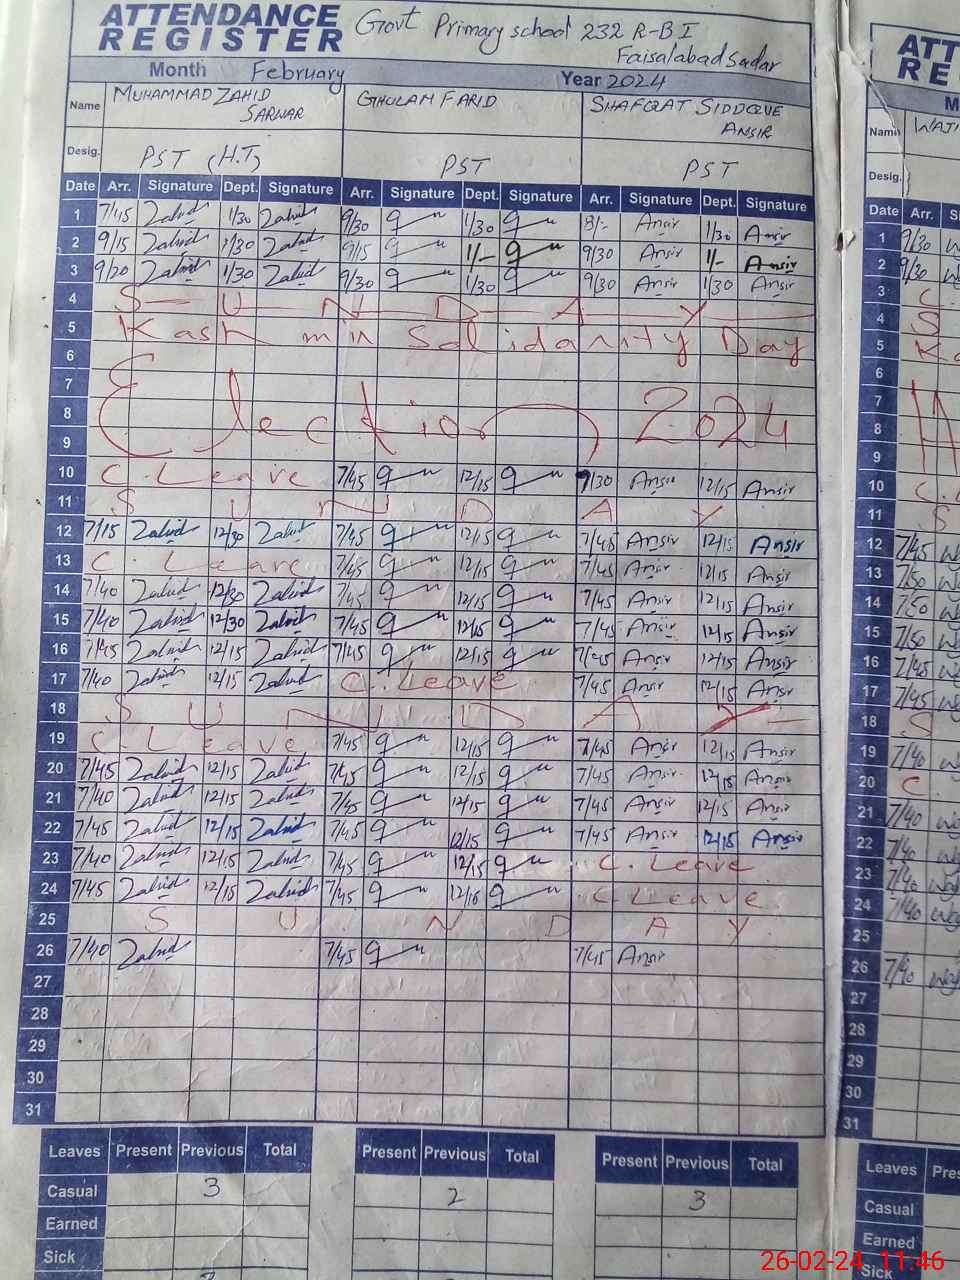 ATTENDANCE REGISTER Govt Primary school 232 R-B I
Faisalabad Sadar
Month February Year 2024
Name MUHAMMAD ZAHID SARWAR GHULAM FARID SHAFQAT SIDDQUE ANSIR
Desig. PST (H.T) PST PST
Date Arr. Signature Dept. Signature Arr. Signature Dept. Signature Arr. Signature Dept. Signature
1 7/45 Zahid 1/30 Zahid 9/30 1/30 8/- Ansir 1/30 Ansir
2 9/15 Zahid 1/30 Zahid 9/15 1/- 9/30 Ansir 1/- Ansir
3 9/20 Zahid 1/30 Zahid 9/30 1/30 9/30 Ansir 1/30 Ansir
4 S U N D A Y
5 Kashmir Solidarity Day
6
7
8 Election 2024
9
10 C. Leave 7/45 12/15 9/30 Ansir 12/15 Ansir
11 S U N D A Y
12 7/15 Zahid 12/30 Zahid 7/45 12/15 7/45 Ansir 12/15 Ansir
13 C. Leave 7/45 12/15 7/45 Ansir 12/15 Ansir
14 7/40 Zahid 12/30 Zahid 7/45 12/15 7/45 Ansir 12/15 Ansir
15 7/40 Zahid 12/30 Zahid 7/45 12/15 7/45 Ansir 12/15 Ansir
16 7/45 Zahid 12/15 Zahid 7/45 12/15 7/45 Ansir 12/15 Ansir
17 7/40 Zahid 12/15 Zahid C. Leave 7/45 Ansir 12/15 Ansir
18 S U N D A Y
19 C. Leave 7/45 12/15 7/45 Ansir 12/15 Ansir
20 7/45 Zahid 12/15 Zahid 7/45 12/15 7/45 Ansir 12/15 Ansir
21 7/40 Zahid 12/15 Zahid 7/45 12/15 7/45 Ansir 12/15 Ansir
22 7/45 Zahid 12/15 Zahid 7/45 12/15 7/45 Ansir 12/15 Ansir
23 7/40 Zahid 12/15 Zahid 7/45 12/15 C. Leave
24 7/45 Zahid 12/15 Zahid 7/45 12/16 C Leave
25 S U N D A Y
26 7/40 Zahid 7/45 7/45 Ansir
27
28
29
30
31
Leaves Present Previous Total Present Previous Total Present Previous Total
Casual 3 2 3
Earned
Sick
ATT
RE
Name WAJI
Desig.
Date Arr. Si
1 9/30
2 9/30
3 C.
4 S
5 Ka
6
7
8
9
10 C.
11 S
12 7/45
13 7/50
14 7/50
15 7/50
16 7/45
17 7/45
18 S
19 7/40
20 C
21 7/40
22 7/40
23 7/40
24 7/40
25
26 7/40
27
28
29
30
31
Leaves Pres
Casual
Earned
Sick
26-02-24 11:46